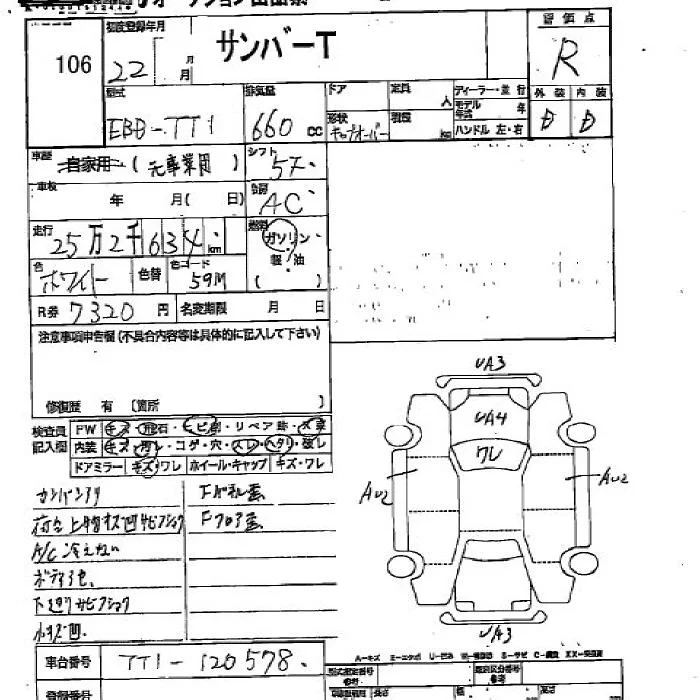 106
初度登録年月
22 年 月
サンバーT
評価点
R
型式
EBD-TT1
排気量
660 cc
ドア
形状
キャブオーバー
定員 人
積載 kg
ディーラー・並行
モデル年式 年
ハンドル 左・右
外装 内装
D D
車歴
自家用 (元事業用)
シフト
5F
車検 年 月( 日)
冷房
AC
走行
25万2千634 km
燃料
ガソリン
軽油
( )
色
ホワイト
色替
色コード
59M
R券 7320 円
名変期限 月 日
注意事項申告欄(不具合内容等は具体的に記入して下さい)
修復歴 有 〔箇所 〕
検査員記入欄
FW キズ・飛石・ヒビ・リペア跡・
内装 キズ・汚レ・コゲ・穴・スレ・ヘタリ・破レ
ドアミラー キズ・ワレ ホイール・キャップ キズ・ワレ
カンバンアリ
荷台上物キズ凹サビフショク
A/C 冷えない
ボデイ
下廻りサビフショク
小キズ凹
UA3
UA4
ワレ
AU2
AU2
UA3
A-キズ E-エクボ U-凹み W-補修跡 S-サビ C-腐食 XX-交換済
車台番号 TT1-120578.
型式指定番号
類別区分番号
登録番号
長さ
高さ